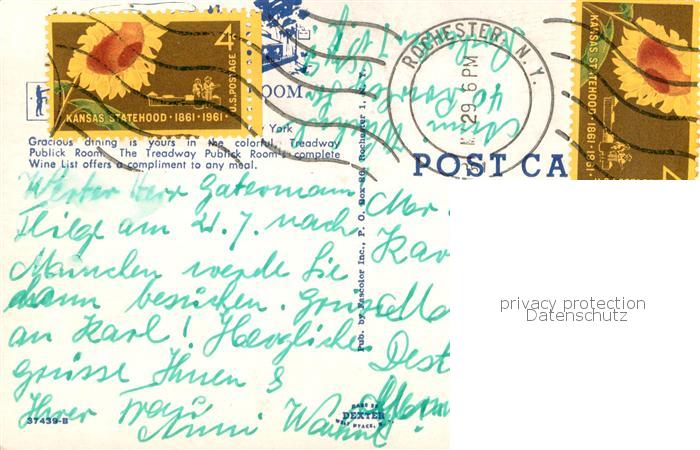 4¢
U.S. POSTAGE
KANSAS STATEHOOD · 1861 - 1961
ROCHESTER, N.Y.
29 6 PM
4
KANSAS STATEHOOD · 1861 - 1961
U.S. POSTAGE
OOM
York
Gracious dining is yours in the colorful Treadway
Publick Room. The Treadway Publick Room's complete
Wine List offers a compliment to any meal.
POST CA
Pub. by Mascolor Inc., P. O. Box 86, Rochester 1, N. Y.
Werter Herr Gatermann
Fliege am 21. 7. nach
München werde Sie
dann besuchen. Grüsse
an Karl! Herzliche
grüsse Ihnen &
Ihrer Frau
Anni
Mr
Kar
Dest
privacy protection
Datenschutz
37439-B
MADE BY
DEXTER
WEST NYACK, N.Y.